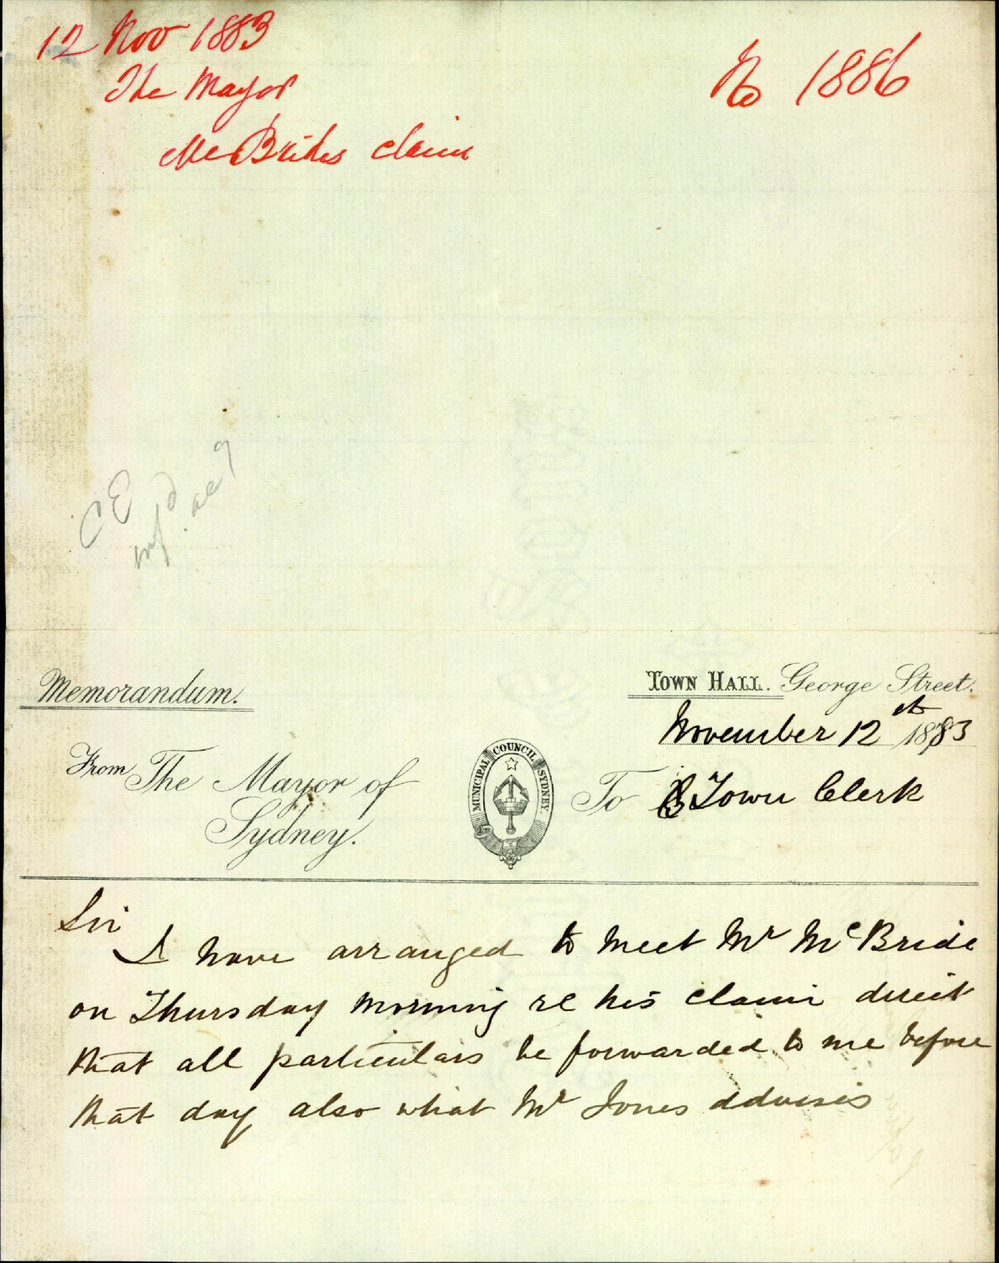 12 Nov 1883
The Mayor
McBrides claim
No 1886
C E
Memorandum.
TOWN HALL. George Street.
November 12th 1883
From The Mayor of
Sydney.
MUNICIPAL COUNCIL SYDNEY.
To Town Clerk
Sir
I have arranged to meet Mr McBride
on Thursday morning re his claim direct
that all particulars be forwarded to me before
that day also what Mr Jones advises